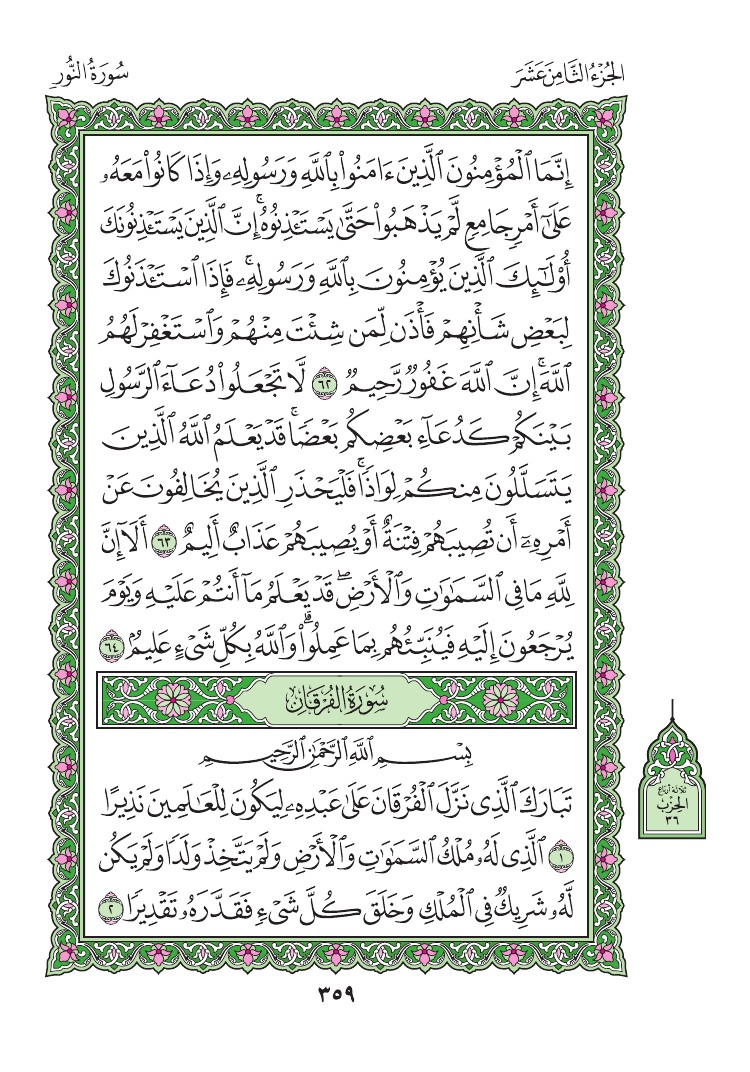 الجُزْءُ الثَّامِنَ عَشَرَ
سُورَةُ النُّورِ
إِنَّمَا ٱلْمُؤْمِنُونَ ٱلَّذِينَ ءَامَنُوا۟ بِٱللَّهِ وَرَسُولِهِۦ وَإِذَا كَانُوا۟ مَعَهُۥ
عَلَىٰٓ أَمْرٍ جَامِعٍ لَّمْ يَذْهَبُوا۟ حَتَّىٰ يَسْتَـْٔذِنُوهُ ۚ إِنَّ ٱلَّذِينَ يَسْتَـْٔذِنُونَكَ
أُو۟لَـٰٓئِكَ ٱلَّذِينَ يُؤْمِنُونَ بِٱللَّهِ وَرَسُولِهِۦ ۚ فَإِذَا ٱسْتَـْٔذَنُوكَ
لِبَعْضِ شَأْنِهِمْ فَأْذَن لِّمَن شِئْتَ مِنْهُمْ وَٱسْتَغْفِرْ لَهُمُ
ٱللَّهَ ۚ إِنَّ ٱللَّهَ غَفُورٌ رَّحِيمٌ ٦٢ لَّا تَجْعَلُوا۟ دُعَآءَ ٱلرَّسُولِ
بَيْنَكُمْ كَدُعَآءِ بَعْضِكُم بَعْضًا ۚ قَدْ يَعْلَمُ ٱللَّهُ ٱلَّذِينَ
يَتَسَلَّلُونَ مِنكُمْ لِوَاذًا ۚ فَلْيَحْذَرِ ٱلَّذِينَ يُخَالِفُونَ عَنْ
أَمْرِهِۦٓ أَن تُصِيبَهُمْ فِتْنَةٌ أَوْ يُصِيبَهُمْ عَذَابٌ أَلِيمٌ ٦٣ أَلَآ إِنَّ
لِلَّهِ مَا فِى ٱلسَّمَـٰوَٰتِ وَٱلْأَرْضِ ۖ قَدْ يَعْلَمُ مَآ أَنتُمْ عَلَيْهِ وَيَوْمَ
يُرْجَعُونَ إِلَيْهِ فَيُنَبِّئُهُم بِمَا عَمِلُوا۟ ۗ وَٱللَّهُ بِكُلِّ شَىْءٍ عَلِيمٌۢ ٦٤
سُورَةُ الفُرْقَانِ
بِسْمِ ٱللَّهِ ٱلرَّحْمَـٰنِ ٱلرَّحِيمِ
تَبَارَكَ ٱلَّذِى نَزَّلَ ٱلْفُرْقَانَ عَلَىٰ عَبْدِهِۦ لِيَكُونَ لِلْعَـٰلَمِينَ نَذِيرًا
١ ٱلَّذِى لَهُۥ مُلْكُ ٱلسَّمَـٰوَٰتِ وَٱلْأَرْضِ وَلَمْ يَتَّخِذْ وَلَدًا وَلَمْ يَكُن
لَّهُۥ شَرِيكٌ فِى ٱلْمُلْكِ وَخَلَقَ كُلَّ شَىْءٍ فَقَدَّرَهُۥ تَقْدِيرًا ٢
ثلاثة أرباع
الحِزْب
٣٦
٣٥٩